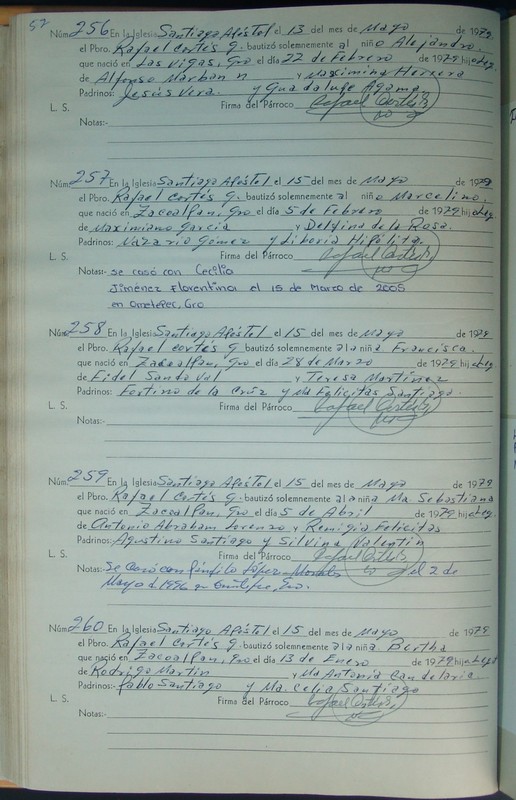 52
Núm. 256 En la Iglesia Santiago Apóstol el 13 del mes de Mayo de 1979
el Pbro. Rafael Cortés G. bautizó solemnemente al niño Alejandro.
que nació en Las Vigas, Gro el día 22 de Febrero de 1979 hijo Leg.
de Alfonso Marban n y Maximina Herrera
Padrinos: Jesús Vera. y Guadalupe Agama.
L. S. Firma del Párroco Rafael Cortés
Notas:-
Núm. 257 En la Iglesia Santiago Apóstol el 15 del mes de Mayo de 1979
el Pbro. Rafael Cortés G. bautizó solemnemente al niño Marcelino.
que nació en Zacoalpan, Gro el día 5 de Febrero de 1979 hijo Leg.
de Maximiano García y Delfina de la Rosa.
Padrinos: Nazario Gómez y Liberia Hipólita.
L. S. Firma del Párroco Rafael Cortés
Notas:- se casó con Cecilia
Jiménez Florentino el 15 de Marzo de 2005
en Ometepec, Gro
Núm. 258 En la Iglesia Santiago Apóstol el 15 del mes de Mayo de 1979
el Pbro. Rafael Cortés G. bautizó solemnemente a la niña Francisca.
que nació en Zacoalpan, Gro el día 28 de Marzo de 1979 hija Leg
de Fidel Sandoval y Teresa Martínez
Padrinos: Fortino de la Cruz y Ma Felicitas Santiago.
L. S. Firma del Párroco Rafael Cortés
Notas:-
Núm. 259 En la Iglesia Santiago Apóstol el 15 del mes de Mayo de 1979
el Pbro. Rafael Cortés G. bautizó solemnemente a la niña Ma. Sebastiana
que nació en Zacoalpan, Gro el día 5 de Abril de 1979 hija Leg.
de Antonio Abraham Lorenzo y Remigia Felicitas
Padrinos: Agustino Santiago y Silvina Valentín
L. S. Firma del Párroco Rafael Cortés
Notas: Se casó con López Morales el 2 de
Mayo d 1996 en Gro.
Núm. 260 En la Iglesia Santiago Apóstol el 15 del mes de Mayo de 1979
el Pbro. Rafael Cortés G. bautizó solemnemente a la niña Bertha
que nació en Zacoalpan, Gro el día 13 de Enero de 1979 hija Leg
de Rodrigo Martín y Ma Antonia Candelaria.
Padrinos:- Pablo Santiago y Ma. Celia Santiago
L. S. Firma del Párroco Rafael Cortés
Notas:-